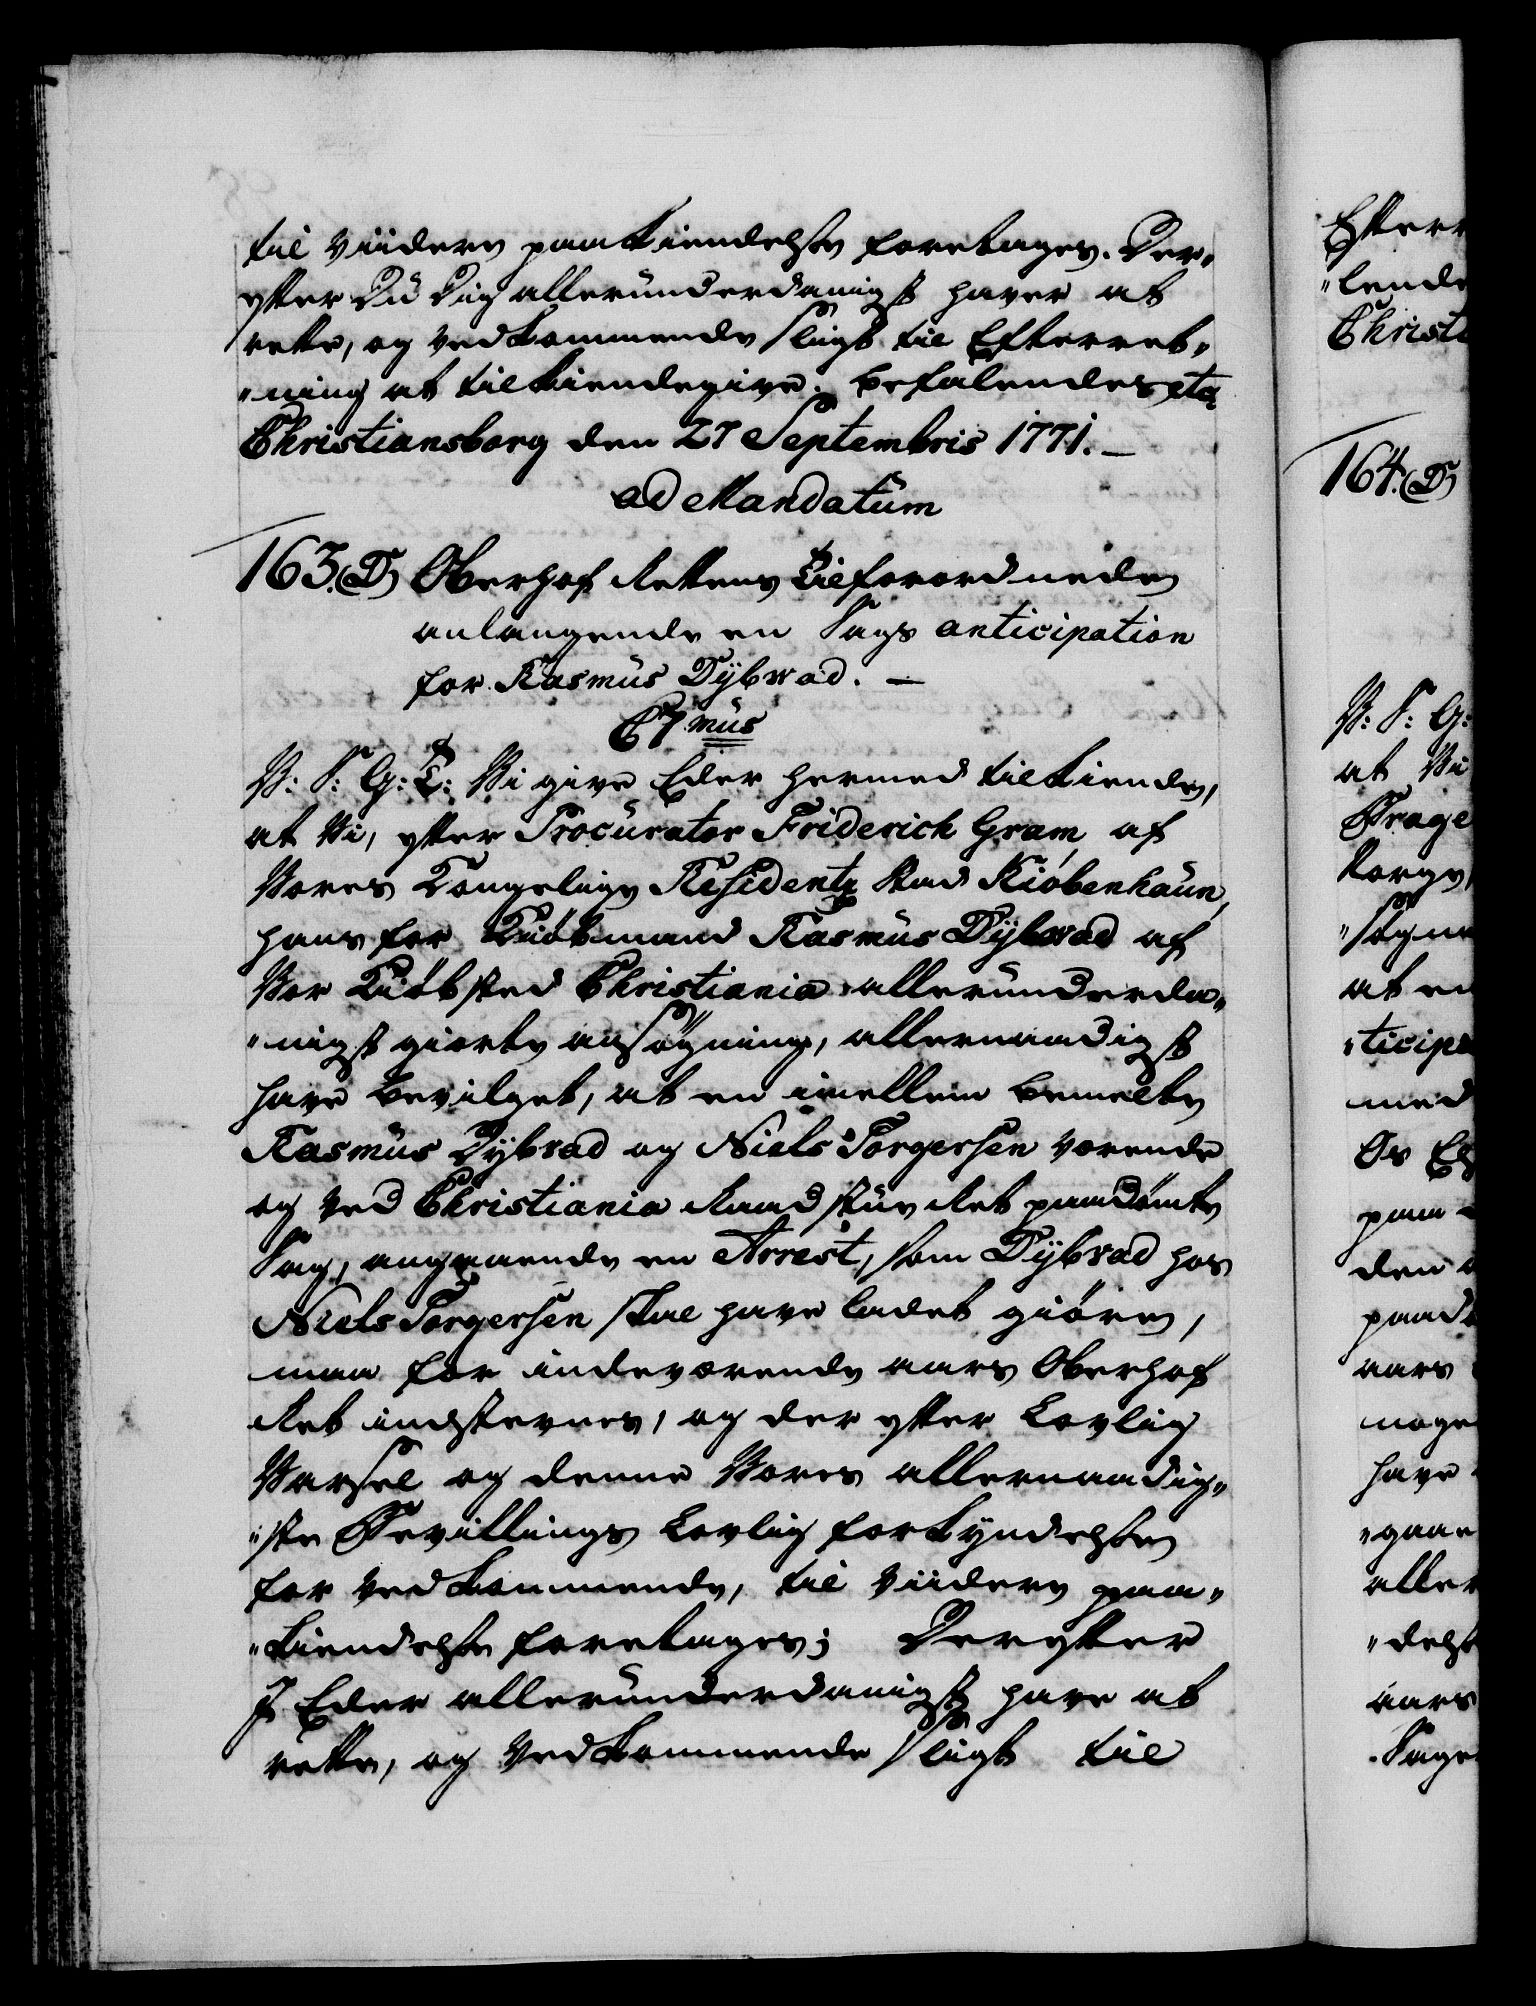 til viidere paakiendelse foretages. Der„
efter Du Dig allerunderdanigst haver at
rette, og vedkommende sligt til Efterret„
„ning at tilkiendegive. befalendes etc
Christiansborg den 27 Septembris 1771.—
ad Mandatum
163. D) Oberhof Rettens Tilforordnede
anlangende en Sags anticipation
for Rasmus Dÿbwad. —
C 7mus
V: S: G: T: Vi give Eder hermed tilkiende,
at Vi, efter Procurator Friderich Gram af
Vores Kongelige Residentz Stad Kiøbenhaun,
hans for Kiøbmand Rasmus Dÿbwad af
Vor Kiøbsted Christiania allerunderda„
„nigst giorte ansøgning, allernaadigst
have bevilget, at en imellem bemelte
Rasmus Dÿbvad og Niels Torgersen værende
og ved Christiania Raadstue Ret paadømte
Sag, angaaende en Arrest, som Dÿbvad hos
Niels Torgersen skal have ladet giøre,
maa for indeværende aars Oberhof
Ret indstevnes, og der efter Lovlig
Varsel og denne Vores allernaadig„
„ste Bevillings Lovlig forkyndelse
for vedkommende, til viidere paa„
„kiendelse foretages; Derefter
I Eder allerunderdanigst have at
rette, og vedkommende sligt til
Efterr
„lende
Christi
164. D)
V: S: G:
at Vi
Trage
Norge,
„søgn
at en
„ticipa
med
Os El
paa
den
paadø
aars
noge
have
„gaae
aller
„dels
aars
Sage